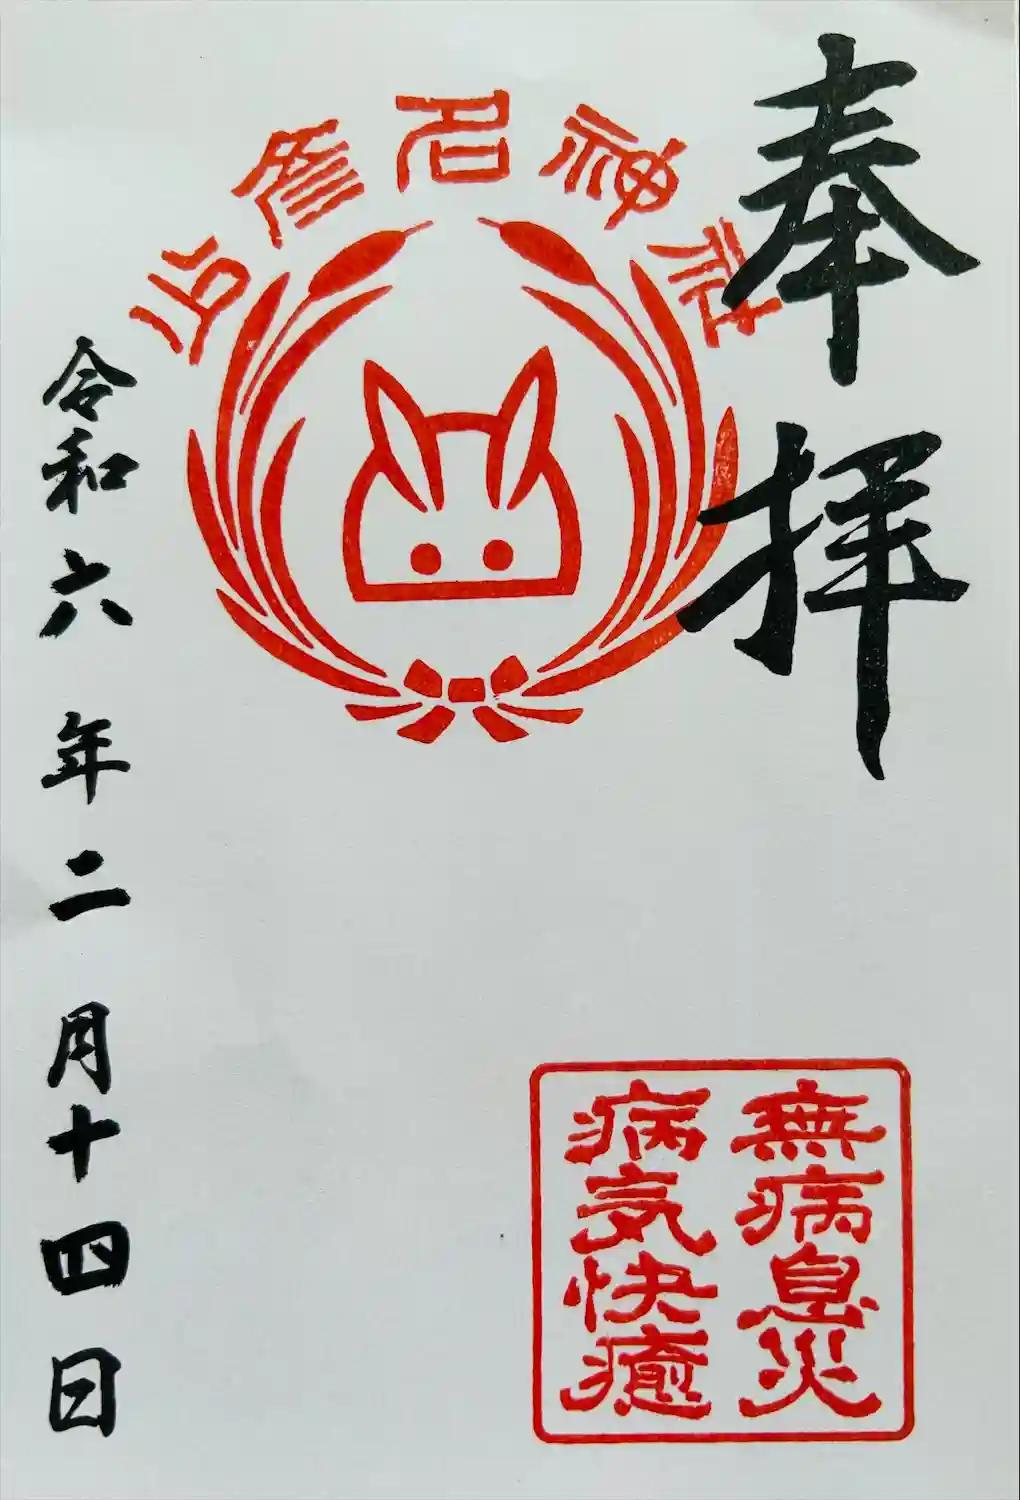 奉拝
少彦名神社
無病息災
病気快癒
令和六年二月十四日